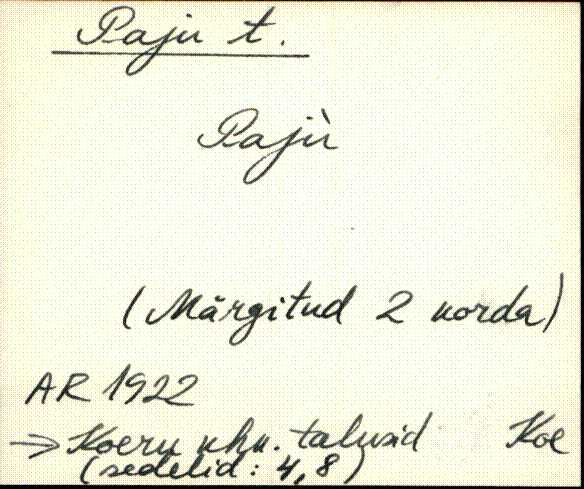 Paju t.
Pajù
(Märgitud 2 korda)
AR 1922
→ Koeru khk. talusid Koe
(sedelid: 4, 8)